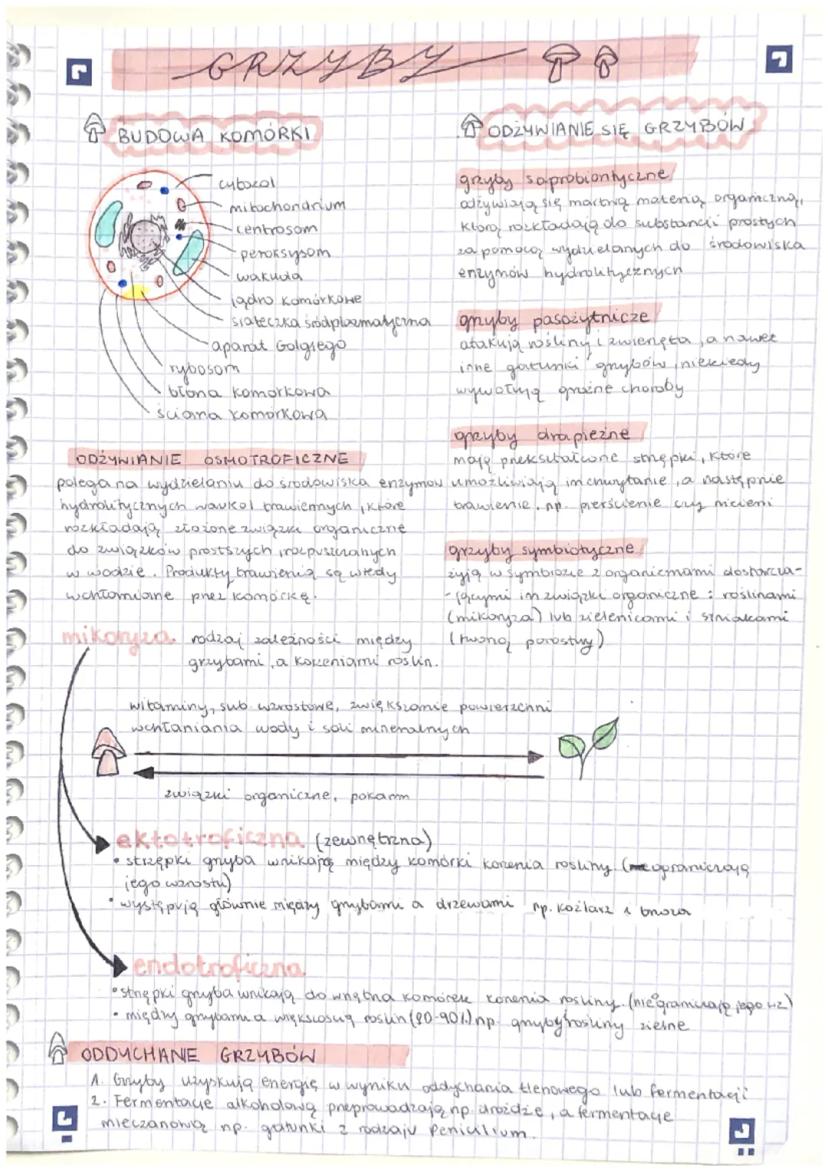 GRZYBY
BUDOWA KOMÓRKI
cytozol
mitochondrium
centrosom
peroksysom
wakuola
jądro komórkowe
siateczka śródplazmatyczna
aparat Golgiego
rybosom
błona komórkowa
ściana komórkowa
ODŻYWIANIE SIĘ GRZYBÓW
grzyby saprobiontyczne
odżywiają się martwą materią organiczną,
którą rozkładają do substancji prostych
za pomocą wydzielanych do środowiska
enzymów hydrolitycznych
grzyby pasożytnicze
atakują rośliny i zwierzęta, a nawet
inne gatunki grzybów, niekiedy
wywołują groźne choroby
grzyby drapieżne
mają przekształcone strzępki, które
umożliwiają im chwytanie, a następnie
trawienie, np. pierścienie czy nicieni
grzyby symbiotyczne
żyją w symbiozie z organizmami dostarcza-
-jącymi im związki organiczne: roślinami
(mikoryza) lub zielenicami i sinicami
(tworzą porosty)
ODŻYWIANIE OSMOTROFICZNE
polega na wydzielaniu do środowiska enzymów
hydrolitycznych trawiennych, które
rozkładają złożone związki organiczne
do związków prostszych, rozpuszczanych
w wodzie. Produkty trawienia są wtedy
wchłaniane przez komórkę.
mikoryza rodzaj zależności między
grzybami, a korzeniami roślin.
witaminy, sub. wzrostowe, zwiększanie powierzchni
wchłaniania wody i soli mineralnych
związki organiczne, pokarm
ektotroficzna (zewnętrzna)
• strzępki grzyba wnikają między komórki korzenia rośliny. (ograniczają
jego wzrostu)
• występują głównie między grzybami a drzewami np. koźlarz i brzoza
endotroficzna
• strzępki grzyba wnikają do wnętrza komórek korzenia rośliny. (nie ograniczają jego wz)
• między grzybami a większością roślin (80-90%) np. grzyby rośliny zielne
ODDYCHANIE GRZYBÓW
1. Grzyby uzyskują energię w wyniku oddychania tlenowego lub fermentacji
2. Fermentację alkoholową przeprowadzają np. drożdże, a fermentację
mleczanową np. gatunki z rodzaju Penicillium.